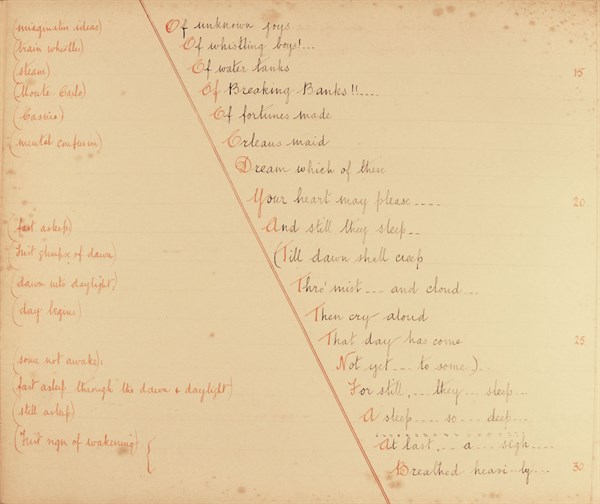 (imaginative ideas) Of unknown joys
(brain whistles) Of whistling boys!...
(steam) Of water tanks 15
(Monte Carlo) Of Breaking Banks!!....
(Casino) Of fortunes made
(mental confusion) Orleans maid
Dream which of these
Your heart may please .... 20
(fast asleep) And still they sleep..
(First glimpse of dawn) (Till dawn shall creep
(dawn into daylight) Thro' mist ... and cloud ...
(day begins) Then cry aloud
That day has come 25
(some not awake) Not yet ... to some)..
(fast asleep through the dawn & daylight) For still, ... they ... sleep...
(still asleep) A sleep .... so ... deep....
(First sign of wakening) { At last .. a ... sigh ....
Breathed heavi-ly... 30